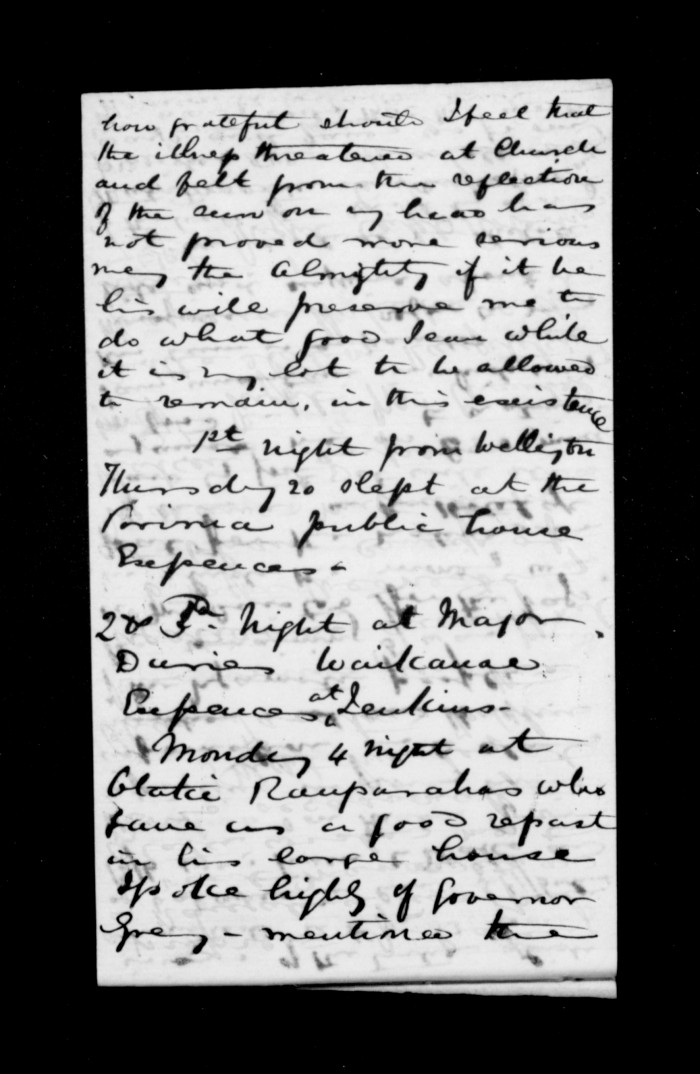 how grateful should I feel that
the illness threatened at Church
and felt from the reflection
of the sun on my head has
not proved more serious
may the Almighty if it be
his will preserve me to
do what good I can while
it is my lot to be allowed
to remain, in this existence
1st night from Wellington
Thursday 20 slept at the
Porirua public house
Expences -
2 & 3rd Night at Major
Duries Waikanae
Expences at Jenkins -
Monday 4 night at
Otakie Rauparahas who
gave us a good repast
in his large house
Spoke highly of Governor
Grey - mentioned the